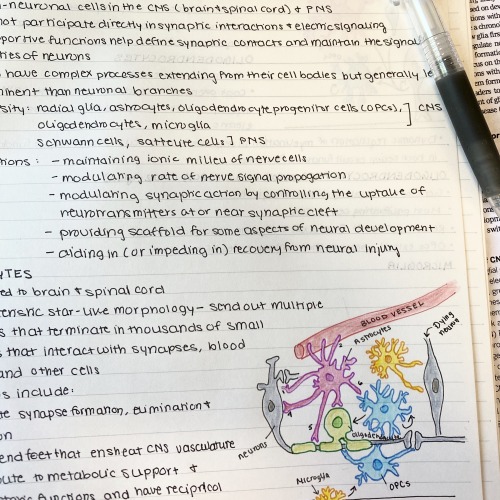 -neuronal cells in the CNS (brain + spinal cord) + PNS
not participate directly in synaptic interactions + electric signaling
portive functions help define synaptic contacts and maintain the signal
ties of neurons
have complex processes extending from their cell bodies but generally le
minent than neuronal branches
sity: radial glia, astrocytes, oligodendrocyte progenitor cells (OPCs), ] CNS
oligodendrocytes, microglia
schwann cells, sattelite cells ] PNS
tions: - maintaining ionic milieu of nerve cells
- modulating rate of nerve signal propogation
- modulating synaptic action by controlling the uptake of
neurotransmitters at or near synaptic cleft
- providing scaffold for some aspects of neural development
- aiding in (or impeding in) recovery from neural injury
YTES
ed to brain + spinal cord
teristic star-like morphology - send out multiple
s that terminate in thousands of small
s that interact with synapses, blood
and other cells
s include:
te synapse formation, elimination +
on
end feet that ensheat CNS vasculature
bute to metabolic support +
functions and have reciprocl
BLOOD VESSEL
Astrocytes
Dying neurone
neurons
oligodendrocyte
Microglia
OPCs